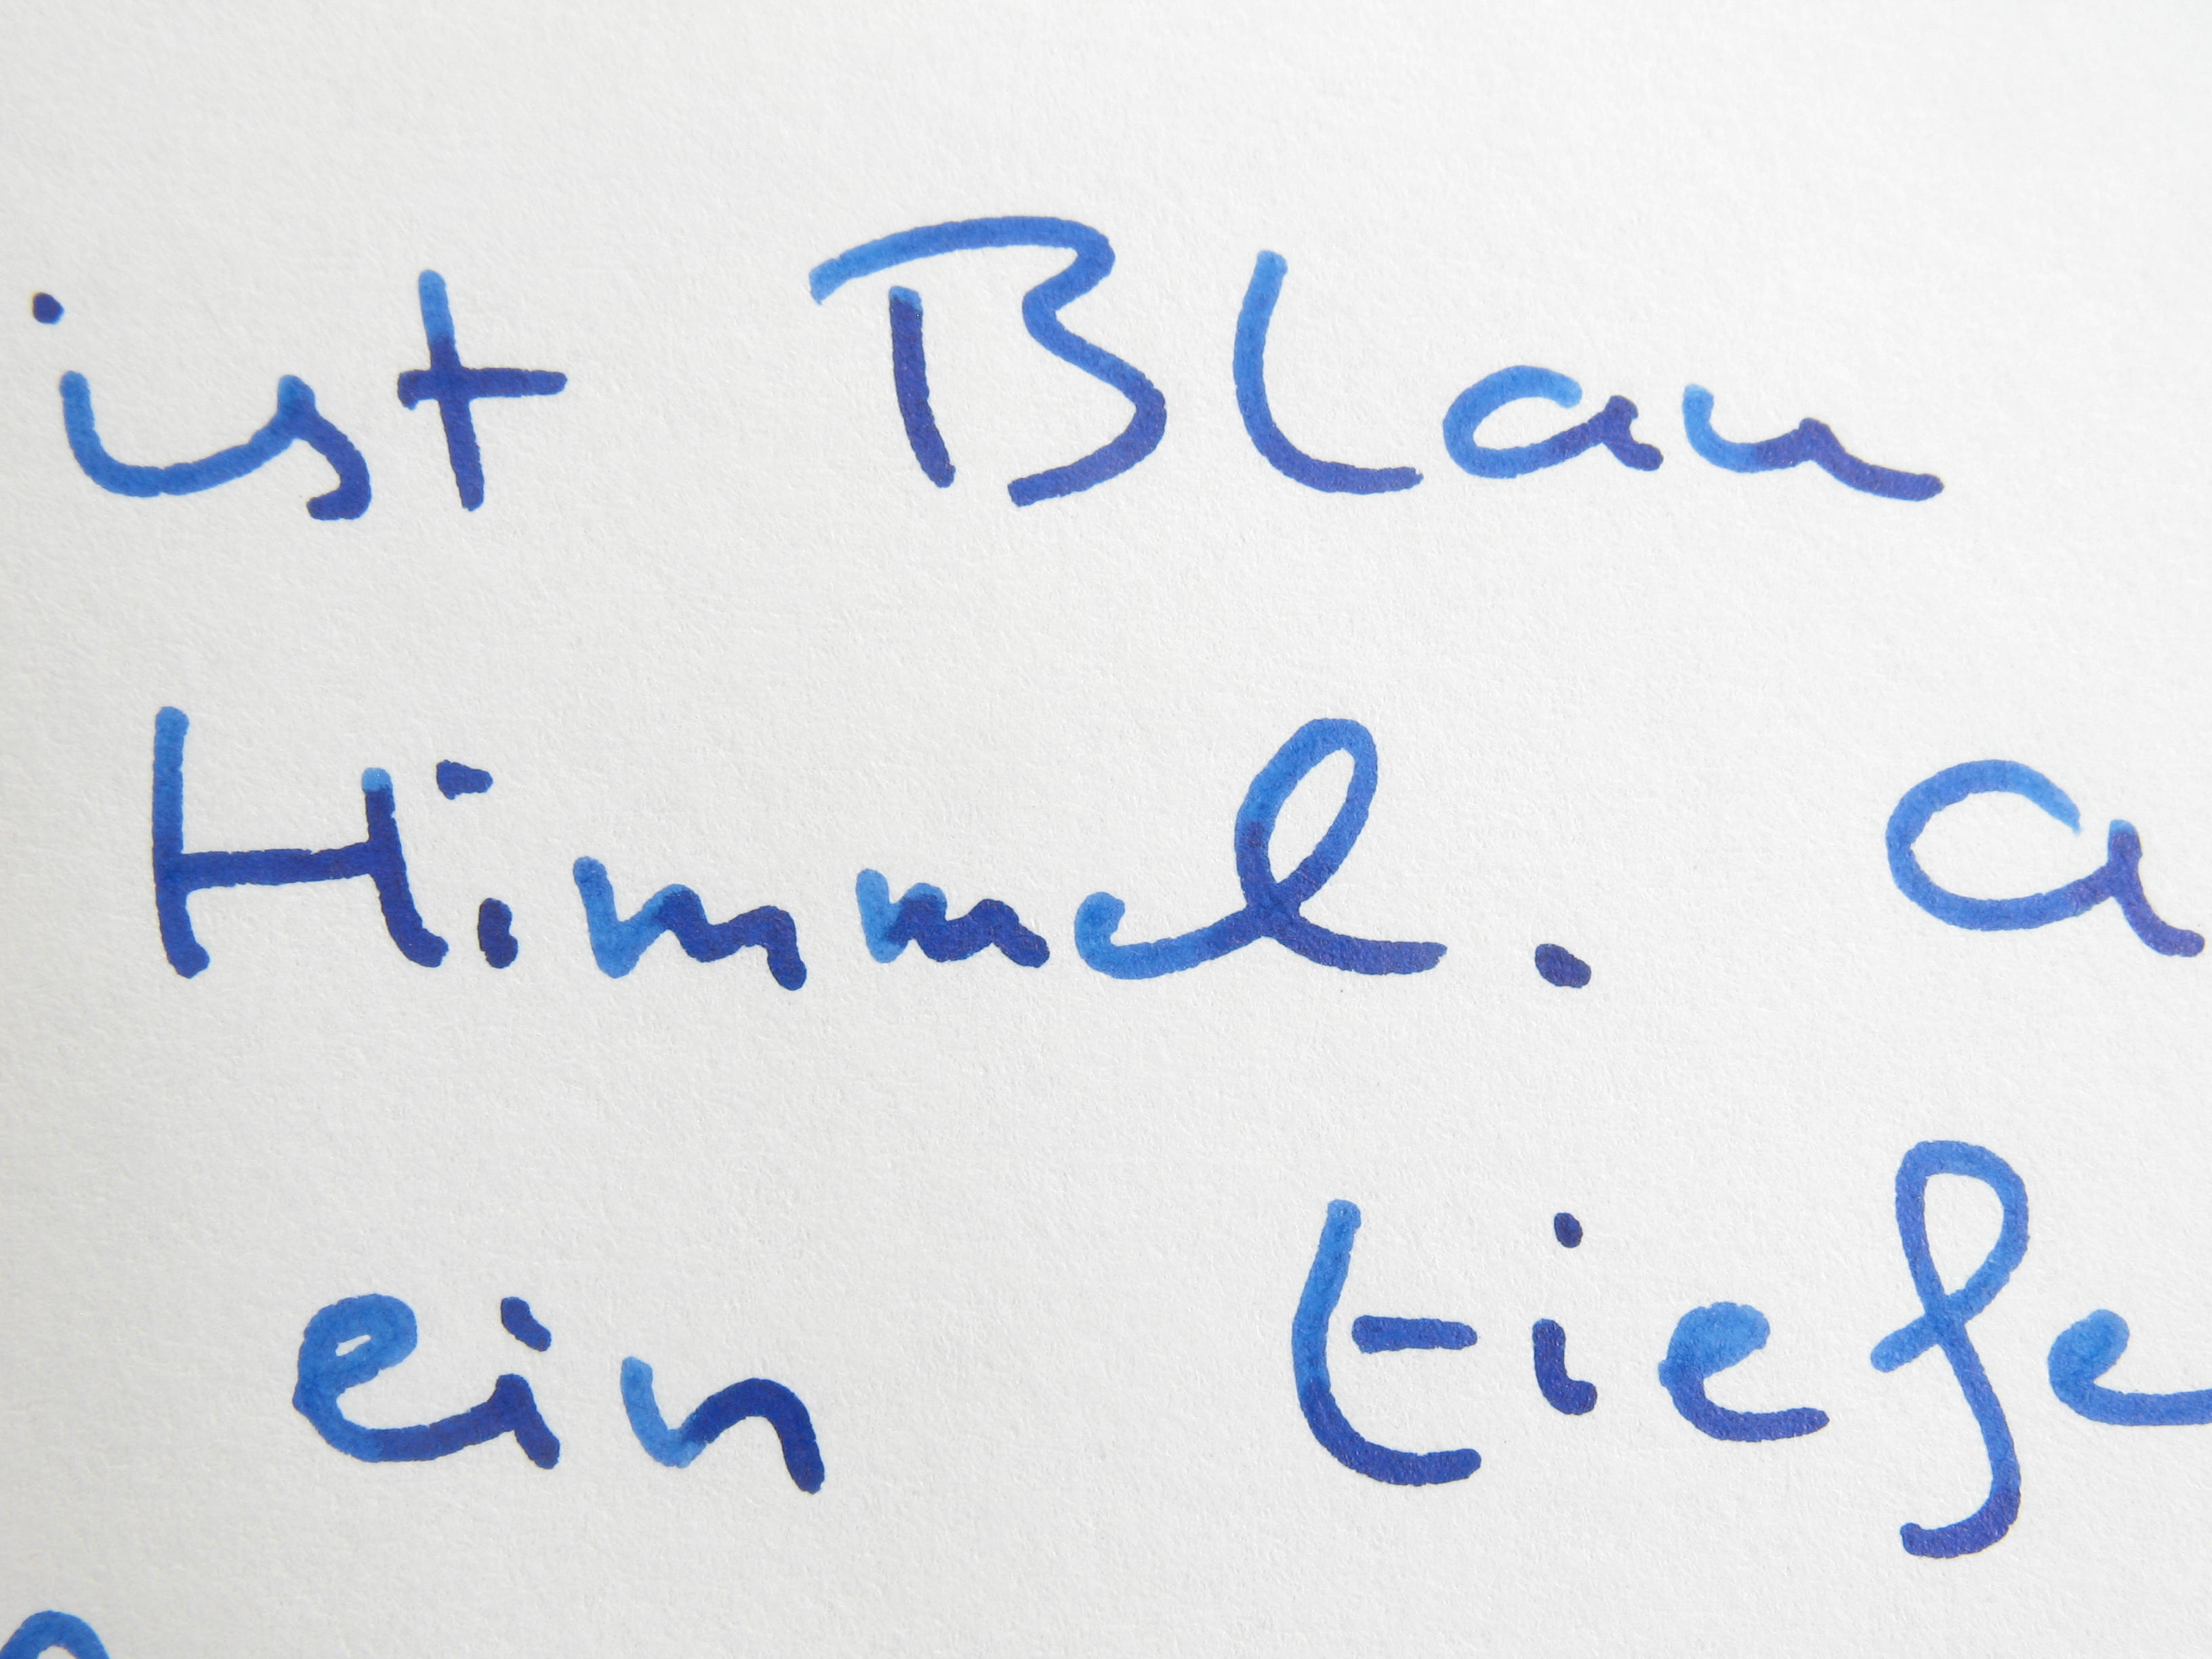 ist Blau
Himmel. a
ein tiefe